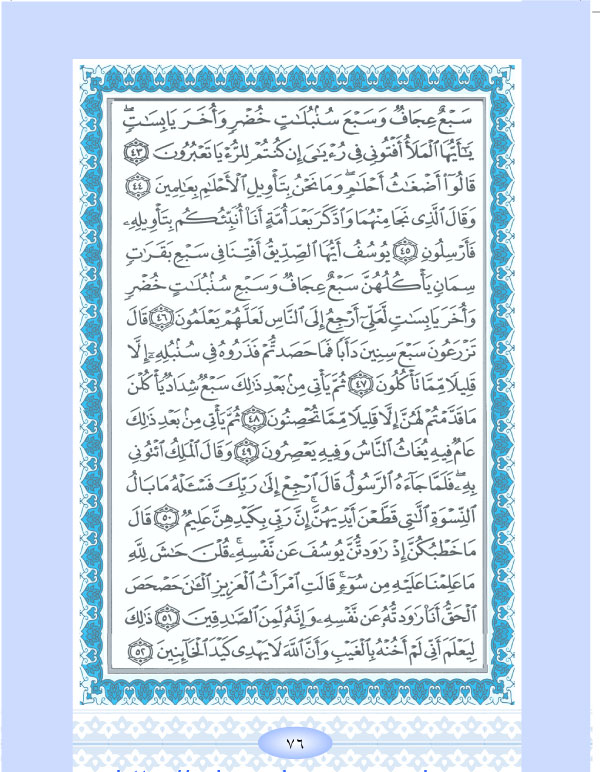 سَبۡعٌ عِجَافٞ وَسَبۡعَ سُنۢبُلَٰتٍ خُضۡرٖ وَأُخَرَ يَابِسَٰتٖۖ
يَٰٓأَيُّهَا ٱلۡمَلَأُ أَفۡتُونِي فِي رُءۡيَٰيَ إِن كُنتُمۡ لِلرُّءۡيَا تَعۡبُرُونَ ٤٣
قَالُوٓاْ أَضۡغَٰثُ أَحۡلَٰمٖۖ وَمَا نَحۡنُ بِتَأۡوِيلِ ٱلۡأَحۡلَٰمِ بِعَٰلِمِينَ ٤٤
وَقَالَ ٱلَّذِي نَجَا مِنۡهُمَا وَٱدَّكَرَ بَعۡدَ أُمَّةٍ أَنَا۠ أُنَبِّئُكُم بِتَأۡوِيلِهِۦ
فَأَرۡسِلُونِ ٤٥ يُوسُفُ أَيُّهَا ٱلصِّدِّيقُ أَفۡتِنَا فِي سَبۡعِ بَقَرَٰتٖ
سِمَانٖ يَأۡكُلُهُنَّ سَبۡعٌ عِجَافٞ وَسَبۡعِ سُنۢبُلَٰتٍ خُضۡرٖ
وَأُخَرَ يَابِسَٰتٖ لَّعَلِّيٓ أَرۡجِعُ إِلَى ٱلنَّاسِ لَعَلَّهُمۡ يَعۡلَمُونَ ٤٦ قَالَ
تَزۡرَعُونَ سَبۡعَ سِنِينَ دَأَبٗا فَمَا حَصَدتُّمۡ فَذَرُوهُ فِي سُنۢبُلِهِۦٓ إِلَّا
قَلِيلٗا مِّمَّا تَأۡكُلُونَ ٤٧ ثُمَّ يَأۡتِي مِنۢ بَعۡدِ ذَٰلِكَ سَبۡعٞ شِدَادٞ يَأۡكُلۡنَ
مَا قَدَّمۡتُمۡ لَهُنَّ إِلَّا قَلِيلٗا مِّمَّا تُحۡصِنُونَ ٤٨ ثُمَّ يَأۡتِي مِنۢ بَعۡدِ ذَٰلِكَ
عَامٞ فِيهِ يُغَاثُ ٱلنَّاسُ وَفِيهِ يَعۡصِرُونَ ٤٩ وَقَالَ ٱلۡمَلِكُ ٱئۡتُونِي
بِهِۦۖ فَلَمَّا جَآءَهُ ٱلرَّسُولُ قَالَ ٱرۡجِعۡ إِلَىٰ رَبِّكَ فَسۡـَٔلۡهُ مَا بَالُ
ٱلنِّسۡوَةِ ٱلَّٰتِي قَطَّعۡنَ أَيۡدِيَهُنَّۚ إِنَّ رَبِّي بِكَيۡدِهِنَّ عَلِيمٞ ٥٠ قَالَ
مَا خَطۡبُكُنَّ إِذۡ رَٰوَدتُّنَّ يُوسُفَ عَن نَّفۡسِهِۦۚ قُلۡنَ حَٰشَ لِلَّهِ
مَا عَلِمۡنَا عَلَيۡهِ مِن سُوٓءٖۚ قَالَتِ ٱمۡرَأَتُ ٱلۡعَزِيزِ ٱلۡـَٰٔنَ حَصۡحَصَ
ٱلۡحَقُّ أَنَا۠ رَٰوَدتُّهُۥ عَن نَّفۡسِهِۦ وَإِنَّهُۥ لَمِنَ ٱلصَّٰدِقِينَ ٥١ ذَٰلِكَ
لِيَعۡلَمَ أَنِّي لَمۡ أَخُنۡهُ بِٱلۡغَيۡبِ وَأَنَّ ٱللَّهَ لَا يَهۡدِي كَيۡدَ ٱلۡخَآئِنِينَ ٥٢
٧٦